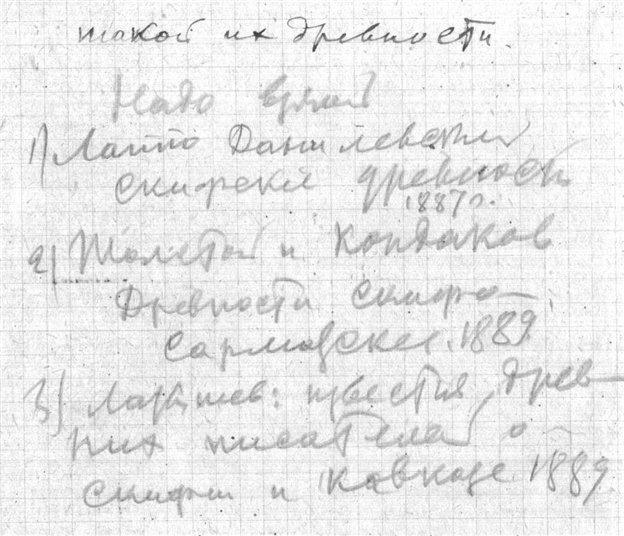 такой их древности.
Надо взять
1) Лаппо Данилевский
Скифские древности
1887 г.
2) Толстой и Кондаков
Древности скифо-
Сарматские. 1889
3) Латышев: известия древ-
них писателей о
Скифии и Кавказе 1889